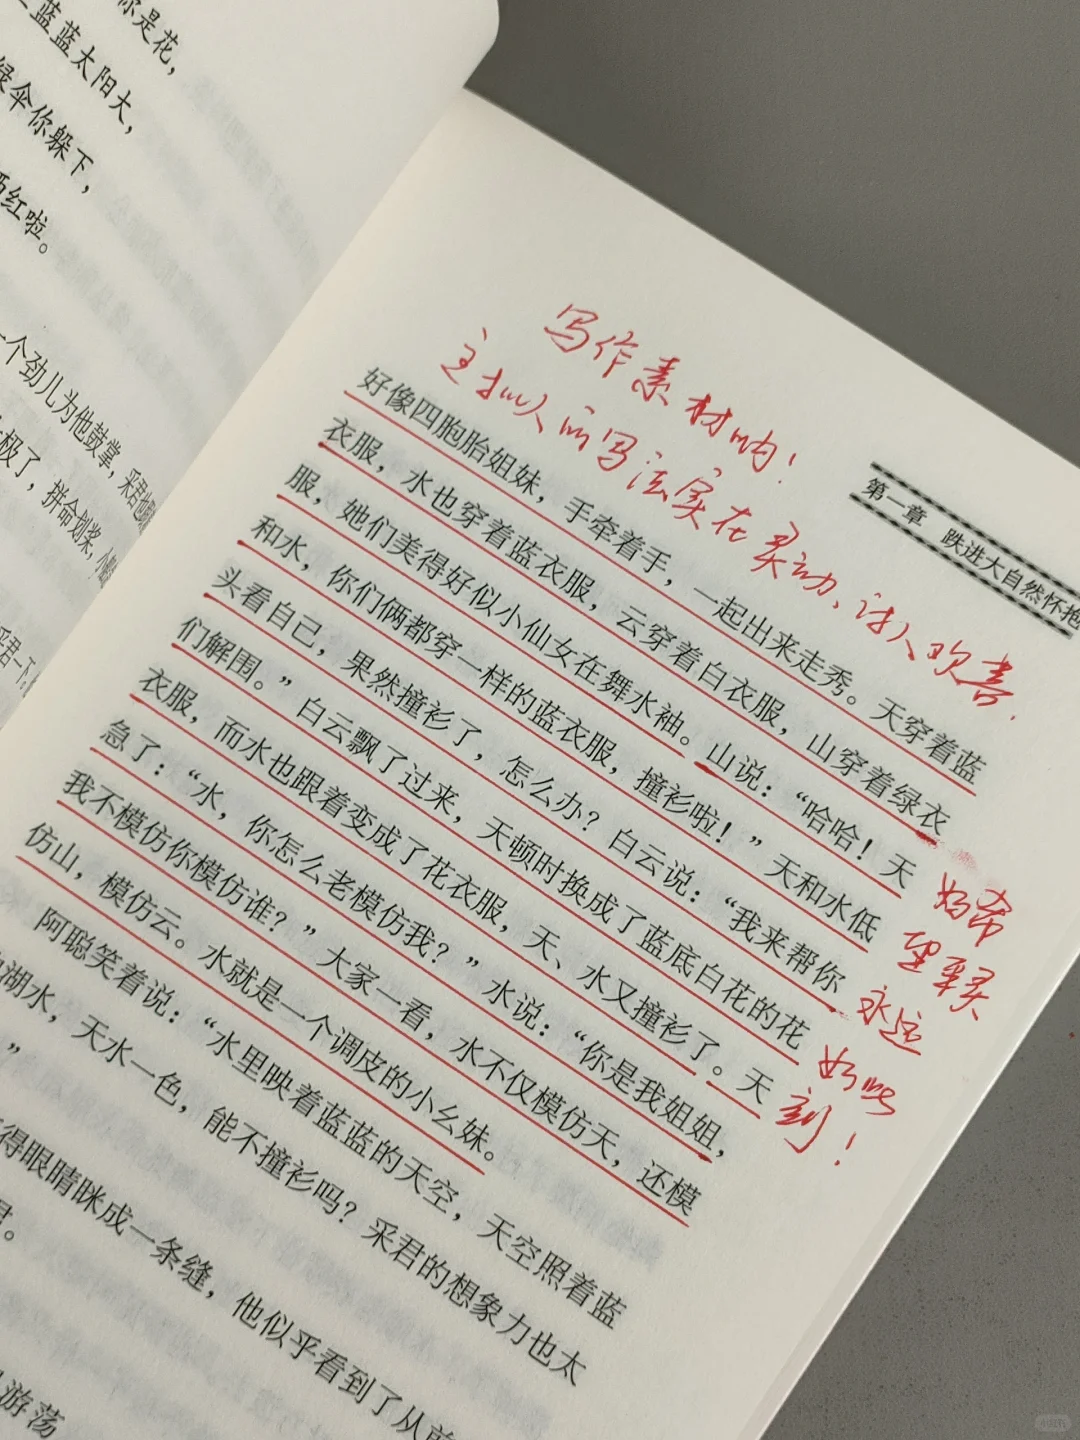 你是花，
蓝蓝太阳大，
绿伞你躲下，
红啦。
一个劲儿为他鼓掌，采君也
极了，拼命划桨，小
采君一下，
写作素材呐！
这拟人的写法实在灵动、讨人欢喜.
第一章 跌进大自然怀抱
好像四胞胎姐妹，手牵着手，一起出来走秀。天穿着蓝
衣服，水也穿着蓝衣服，云穿着白衣服，山穿着绿衣
服，她们美得好似小仙女在舞水袖。山说：“哈哈！天
和水，你们俩都穿一样的蓝衣服，撞衫啦！”天和水低
头看自己，果然撞衫了，怎么办？白云说：“我来帮你
们解围。”白云飘了过来，天顿时换成了蓝底白花的花
衣服，而水也跟着变成了花衣服，天、水又撞衫了。天
急了：“水，你怎么老模仿我？”水说：“你是我姐姐，
我不模仿你模仿谁？”大家一看，水不仅模仿天，还模
仿山，模仿云。水就是一个调皮的小幺妹。
阿聪笑着说：“水里映着蓝蓝的天空，天空照着蓝
湖水，天水一色，能不撞衫吗？采君的想象力也太
”
得眼睛眯成一条缝，他似乎看到了从前
君。
游荡
好希
望
永远
如此
刻！